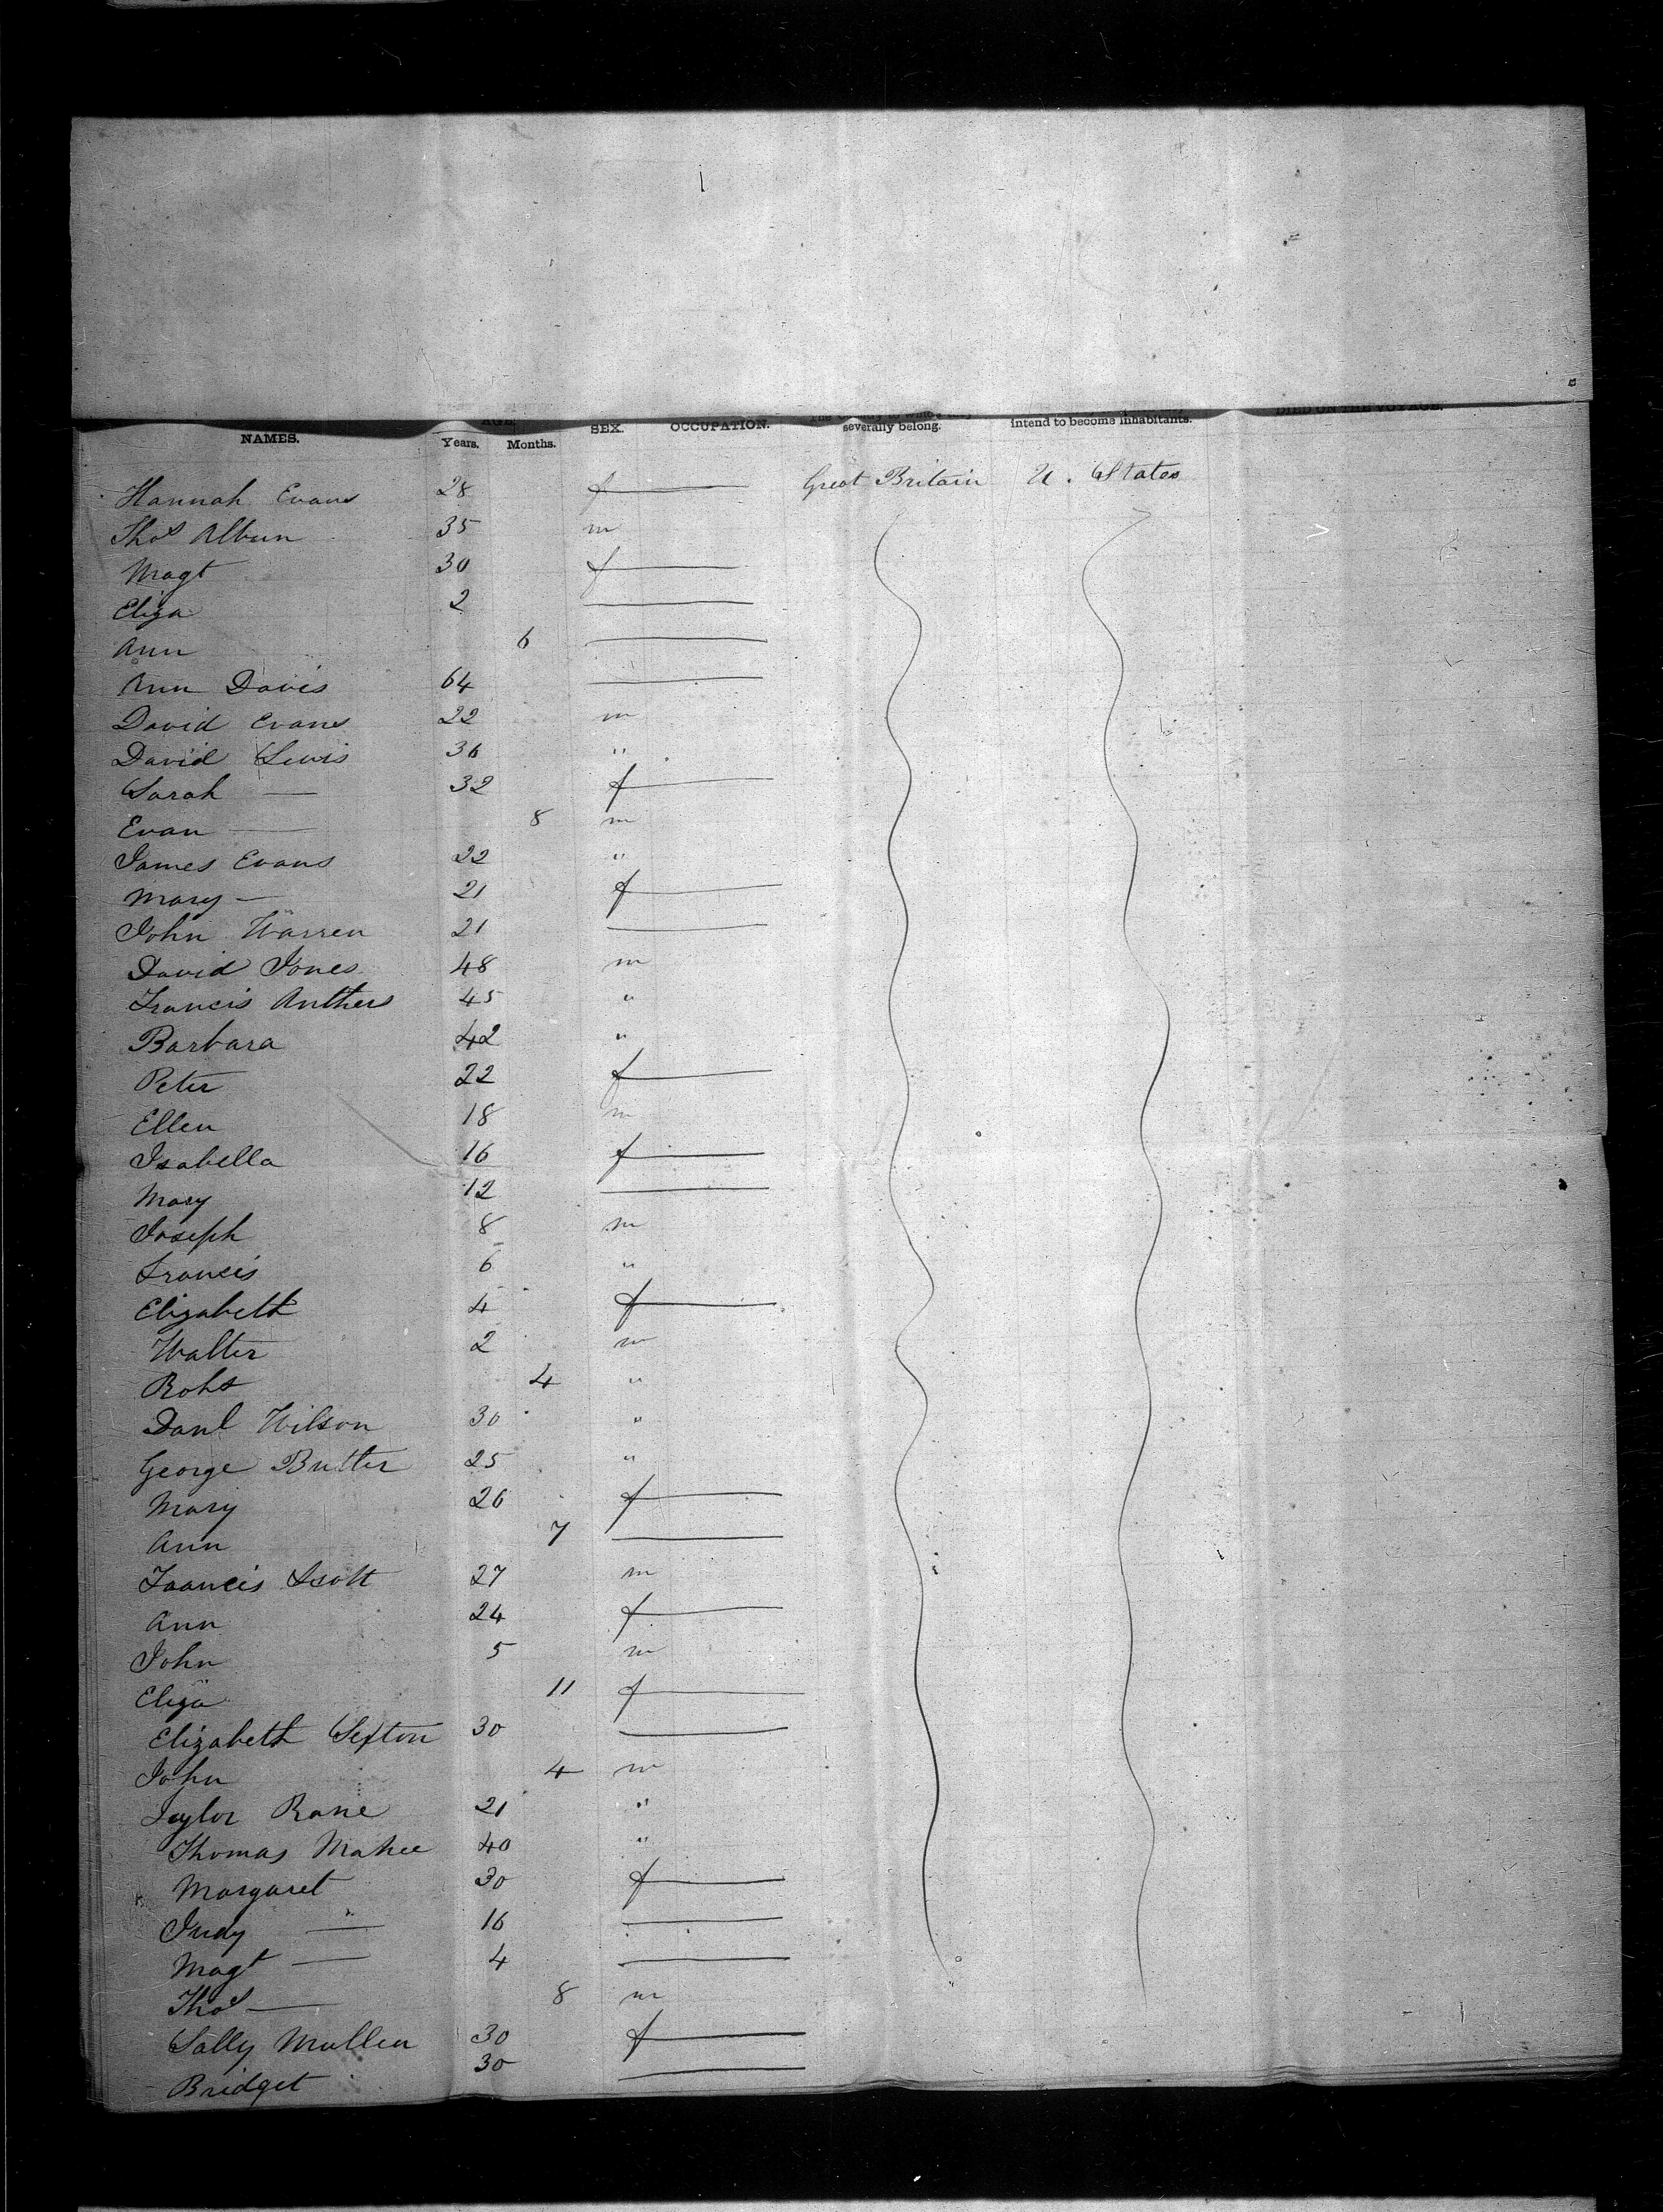 AGE.
DIED ON THE VOYAGE.
NAMES. Years. Months. SEX. OCCUPATION. severally belong. intend to become inhabitants.
Hannah Evans 28 f Great Britain U. States
Thos Albun 35 m
Magt 30 f
Eliza 2
Ann 6
Ann Davis 64
David Evans 22 m
David Lewis 36 "
Sarah — 32 f
Evan — 8 m
James Evans 22 "
Mary — 21 f
John Warren 21
David Jones 48 m
Francis Anthers 45 "
Barbara 42 "
Peter 22 f
Ellen 18 m
Isabella 16 f
Mary 12
Joseph 8 m
Francis 6 "
Elizabeth 4 f
Walter 2 m
Robt 4 "
Danl Wilson 30 "
George Butler 25 "
Mary 26 f
Ann 7
Francis Scott 27 m
Ann 24 f
John 5 m
Eliza 11 f
Elizabeth Sefton 30
John 4 m
Taylor Rane 21 "
Thomas Mahee 40 "
Margaret 30 f
Judy — " 16
Magt — 4
Thos — 8 m
Sally Mullen 30 f
Bridget 30